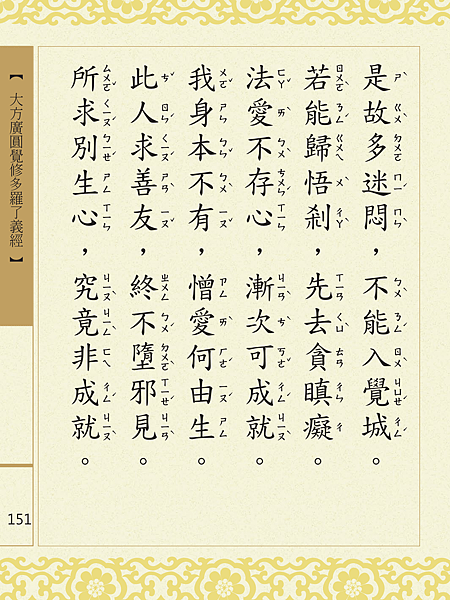 是故多迷悶，不能入覺城。
若能歸悟剎，先去貪瞋癡。
法愛不存心，漸次可成就。
我身本不有，憎愛何由生。
此人求善友，終不墮邪見。
所求別生心，究竟非成就。
【大方廣圓覺修多羅了義經】
151